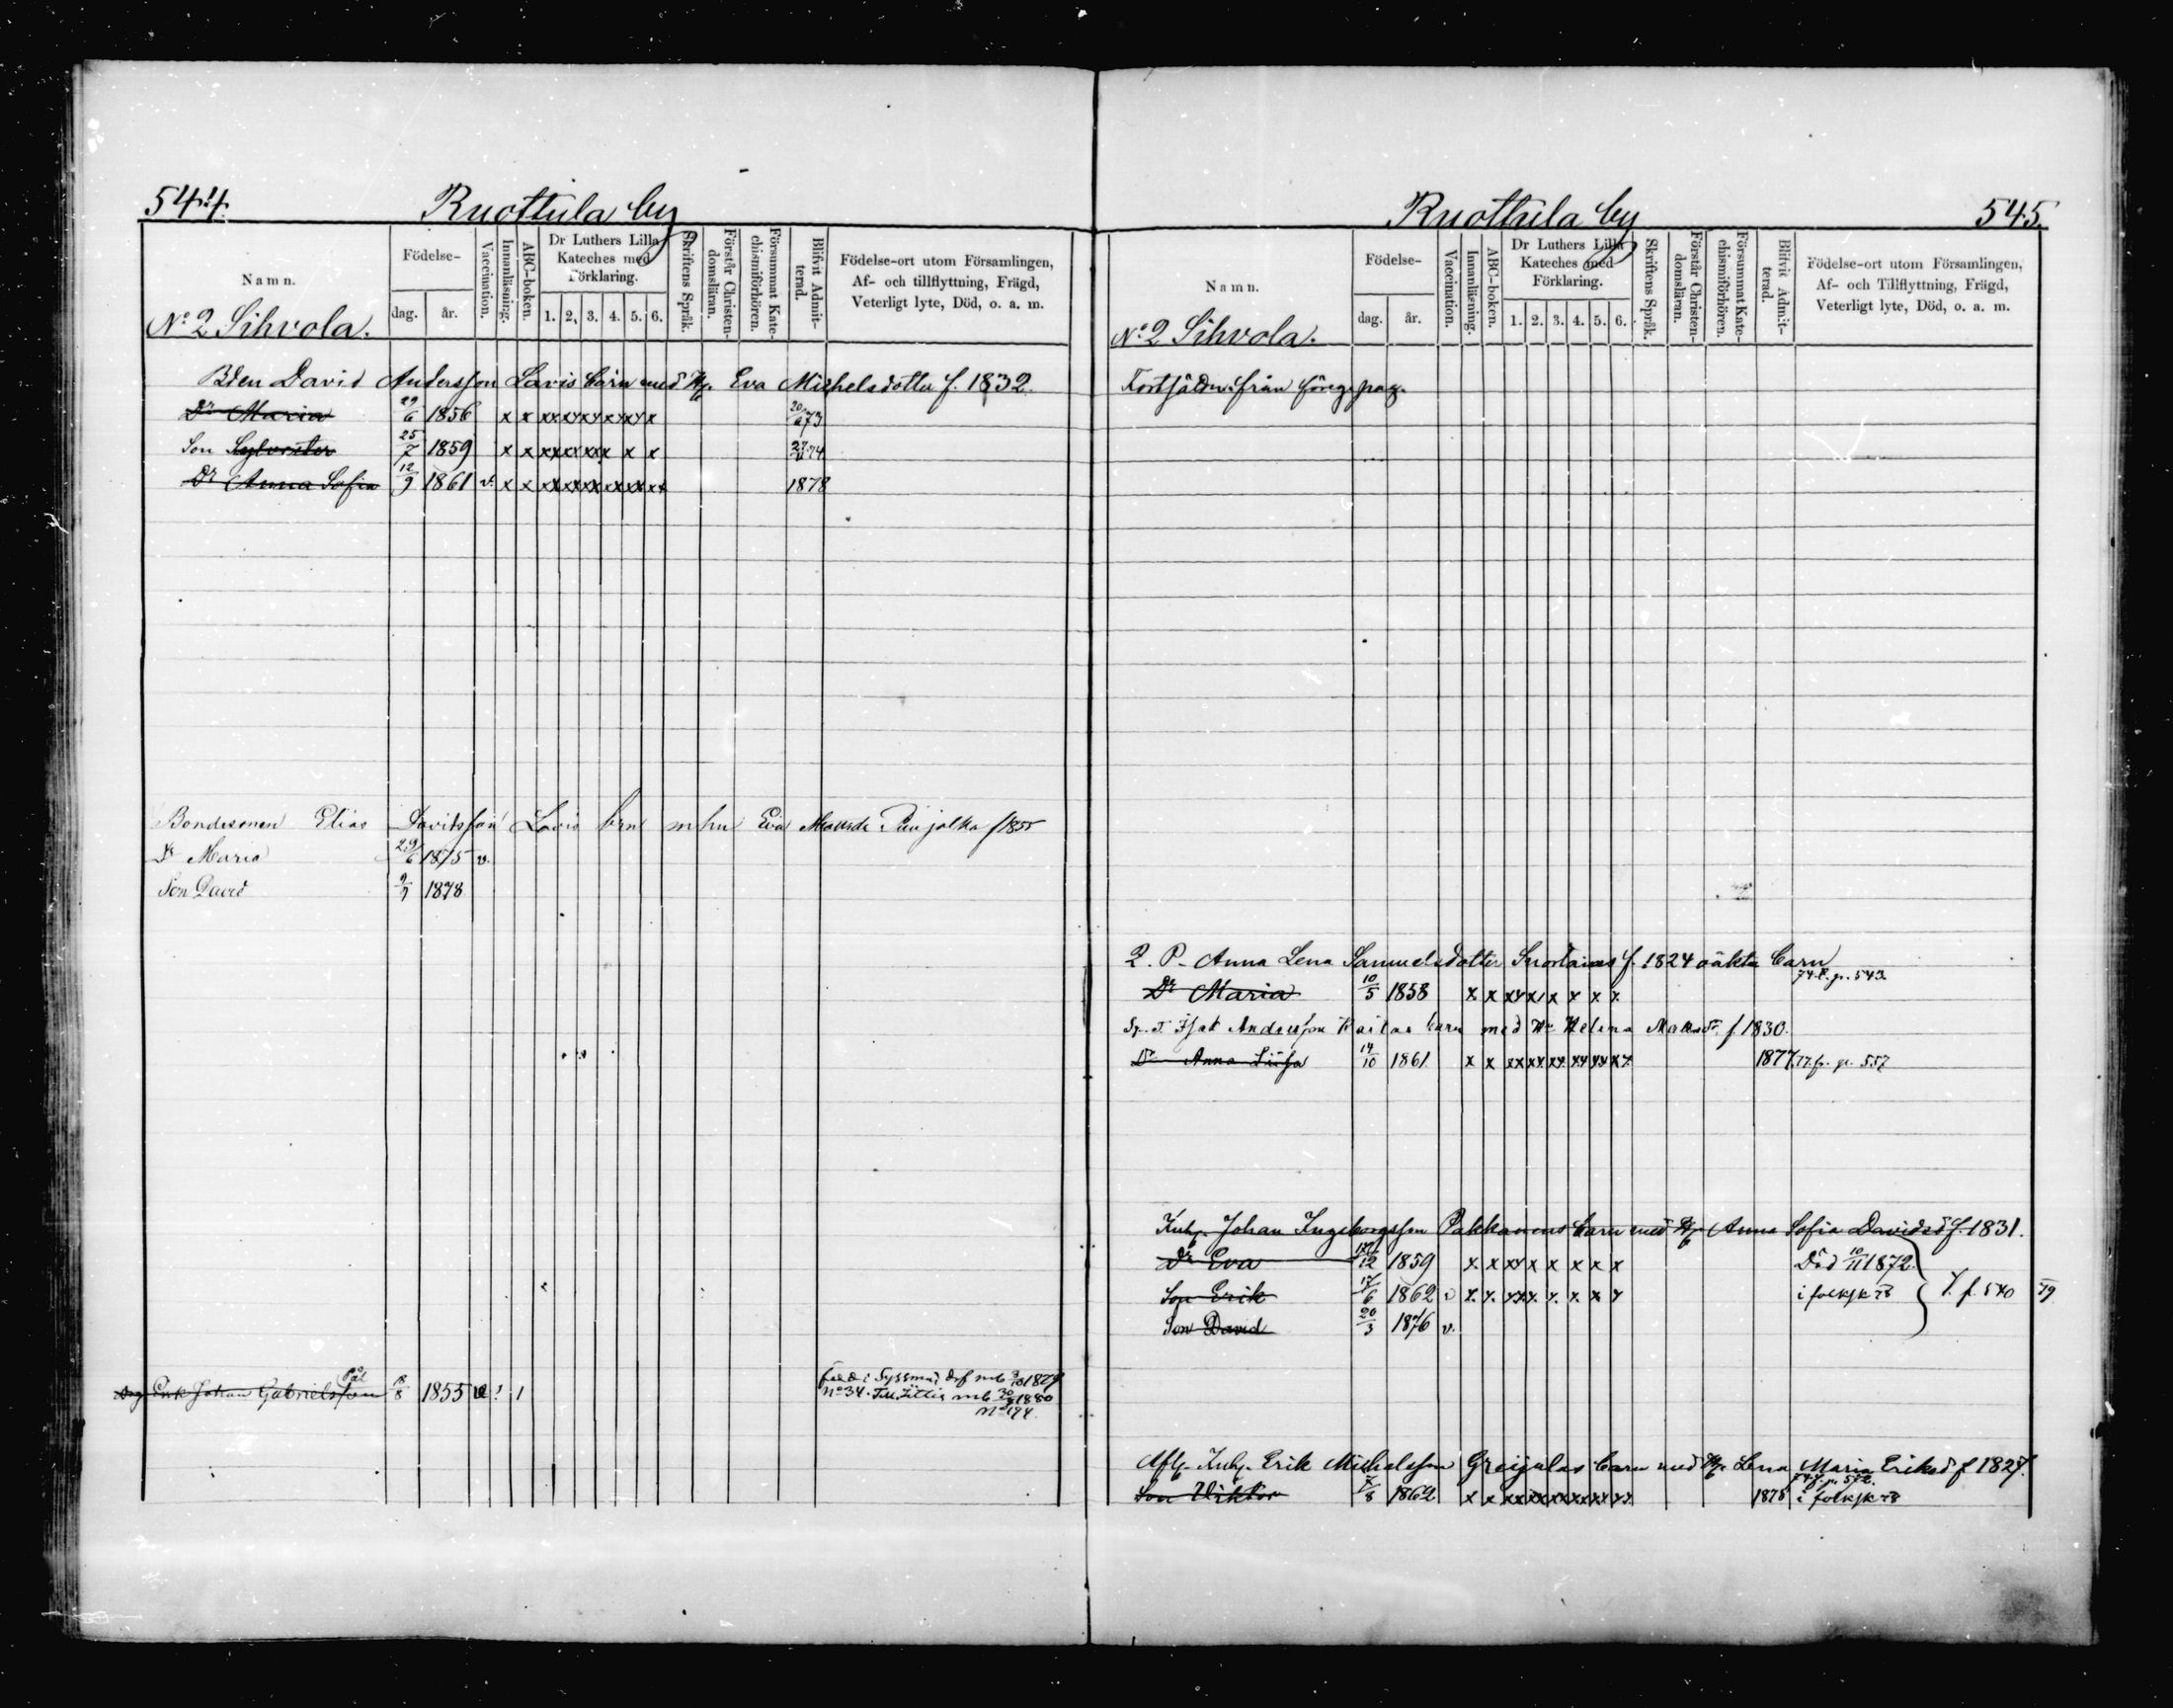 544.
Ruottula by
Namn.
Födelse-
dag.
år.
Vaccination.
Innanläsning.
ABC-boken.
Dr Luthers Lilla
Kateches med
Förklaring.
1. 2. 3. 4. 5. 6.
Skriftens Språk.
Förstår Christen-
domsläran.
Försummat Kate-
chismiförhören.
Blifvit Admit-
terad.
Födelse-ort utom Församlingen,
Af- och tillflyttning, Frägd,
Veterligt lyte, Död, o. a. m.
No 2 Sihvola.
Bden David Andersson Lavis barn med Hu Eva Michelsdotter f. 1832.
Dr Maria 29/6 1856 x x xx xx xx xx x 20/6 73
Son Sylvester 25/7 1859 x x xx xx xx x x 74
Dr Anna Sofia 12/9 1861 v. x x xx xx xx xx xx xx 1878
Bondesonen Elias Davidsson Lavis brn m hu Eva f 1855
Dr Maria 29/6 1875 v.
Son David 9/9 1878
Erik Johan Gabrielsson 18/8 1855 1
född i Syssmä, 1879
No 34. Till Jittis mb 30/ 1880
No 194.
Ruottula by
545.
Namn.
Födelse-
dag.
år.
Vaccination.
Innanläsning.
ABC-boken.
Dr Luthers Lilla
Kateches med
Förklaring.
1. 2. 3. 4. 5. 6.
Skriftens Språk.
Förstår Christen-
domsläran.
Försummat Kate-
chismiförhören.
Blifvit Admit-
terad.
Födelse-ort utom Församlingen,
Af- och Tillflyttning, Frägd,
Veterligt lyte, Död, o. a. m.
No 2 Sihvola.
från föreg. pag.
Q. P. Anna Lena Samuelsdotter f. 1824 oäkta barn
Dr Maria 10/5 1858 x x xx x x x x x 74 p. 543
Isak Andersson barn med Hu Helena f. 1830.
Dr Anna Lisa 14/10 1861 x x xx xx xx xx xx xx 1877 77 p. 557
Inh. Johan Ingeborgsson Pakkanens barn med Hu Anna Sofia Davidsd f. 1831.
Dr Eva 12 1859 x x xx x x x x x Död 10/11 1872
Son Erik 17/6 1862 v x x xx x x x x x i folksk 78 f. 540 79
Son David 20/3 1876 v.
Afl. Inh. Erik Michelsson Greijulas barn med Hu Lena Maria Eriksd f 1827.
Son Viktor 8 1862 x x xx xx xx xx xx xx 1878 i folksk 78